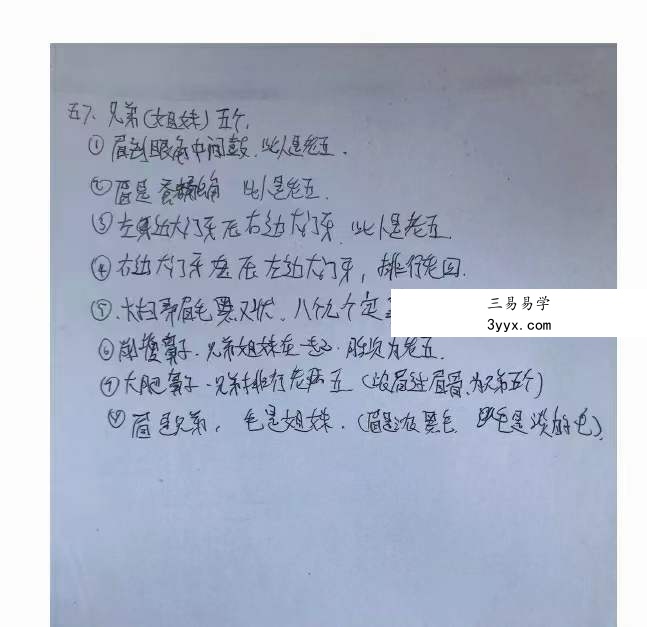 五7、兄弟(女姐妹)五个,
① 眉到眼角中间鼓.此人是老五.
② 眉是 角 此人是老五.
③ 左边大门牙压右边大门牙.此人是老五.
④ 右边大门牙 压 左边大门牙,排行老四.
⑤.大扫帚眉毛 黑又 .八个九个定
三易易学
3yyx.com
⑥ 瘦鼻子.兄弟姐妹在一起.
⑦ 大肥鼻子.兄弟排行老 五(浓眉 眉骨.为兄弟五个)
⑧ 眉是兄弟,毛是姐妹.(眉是浓黑毛. 毛是淡的毛).